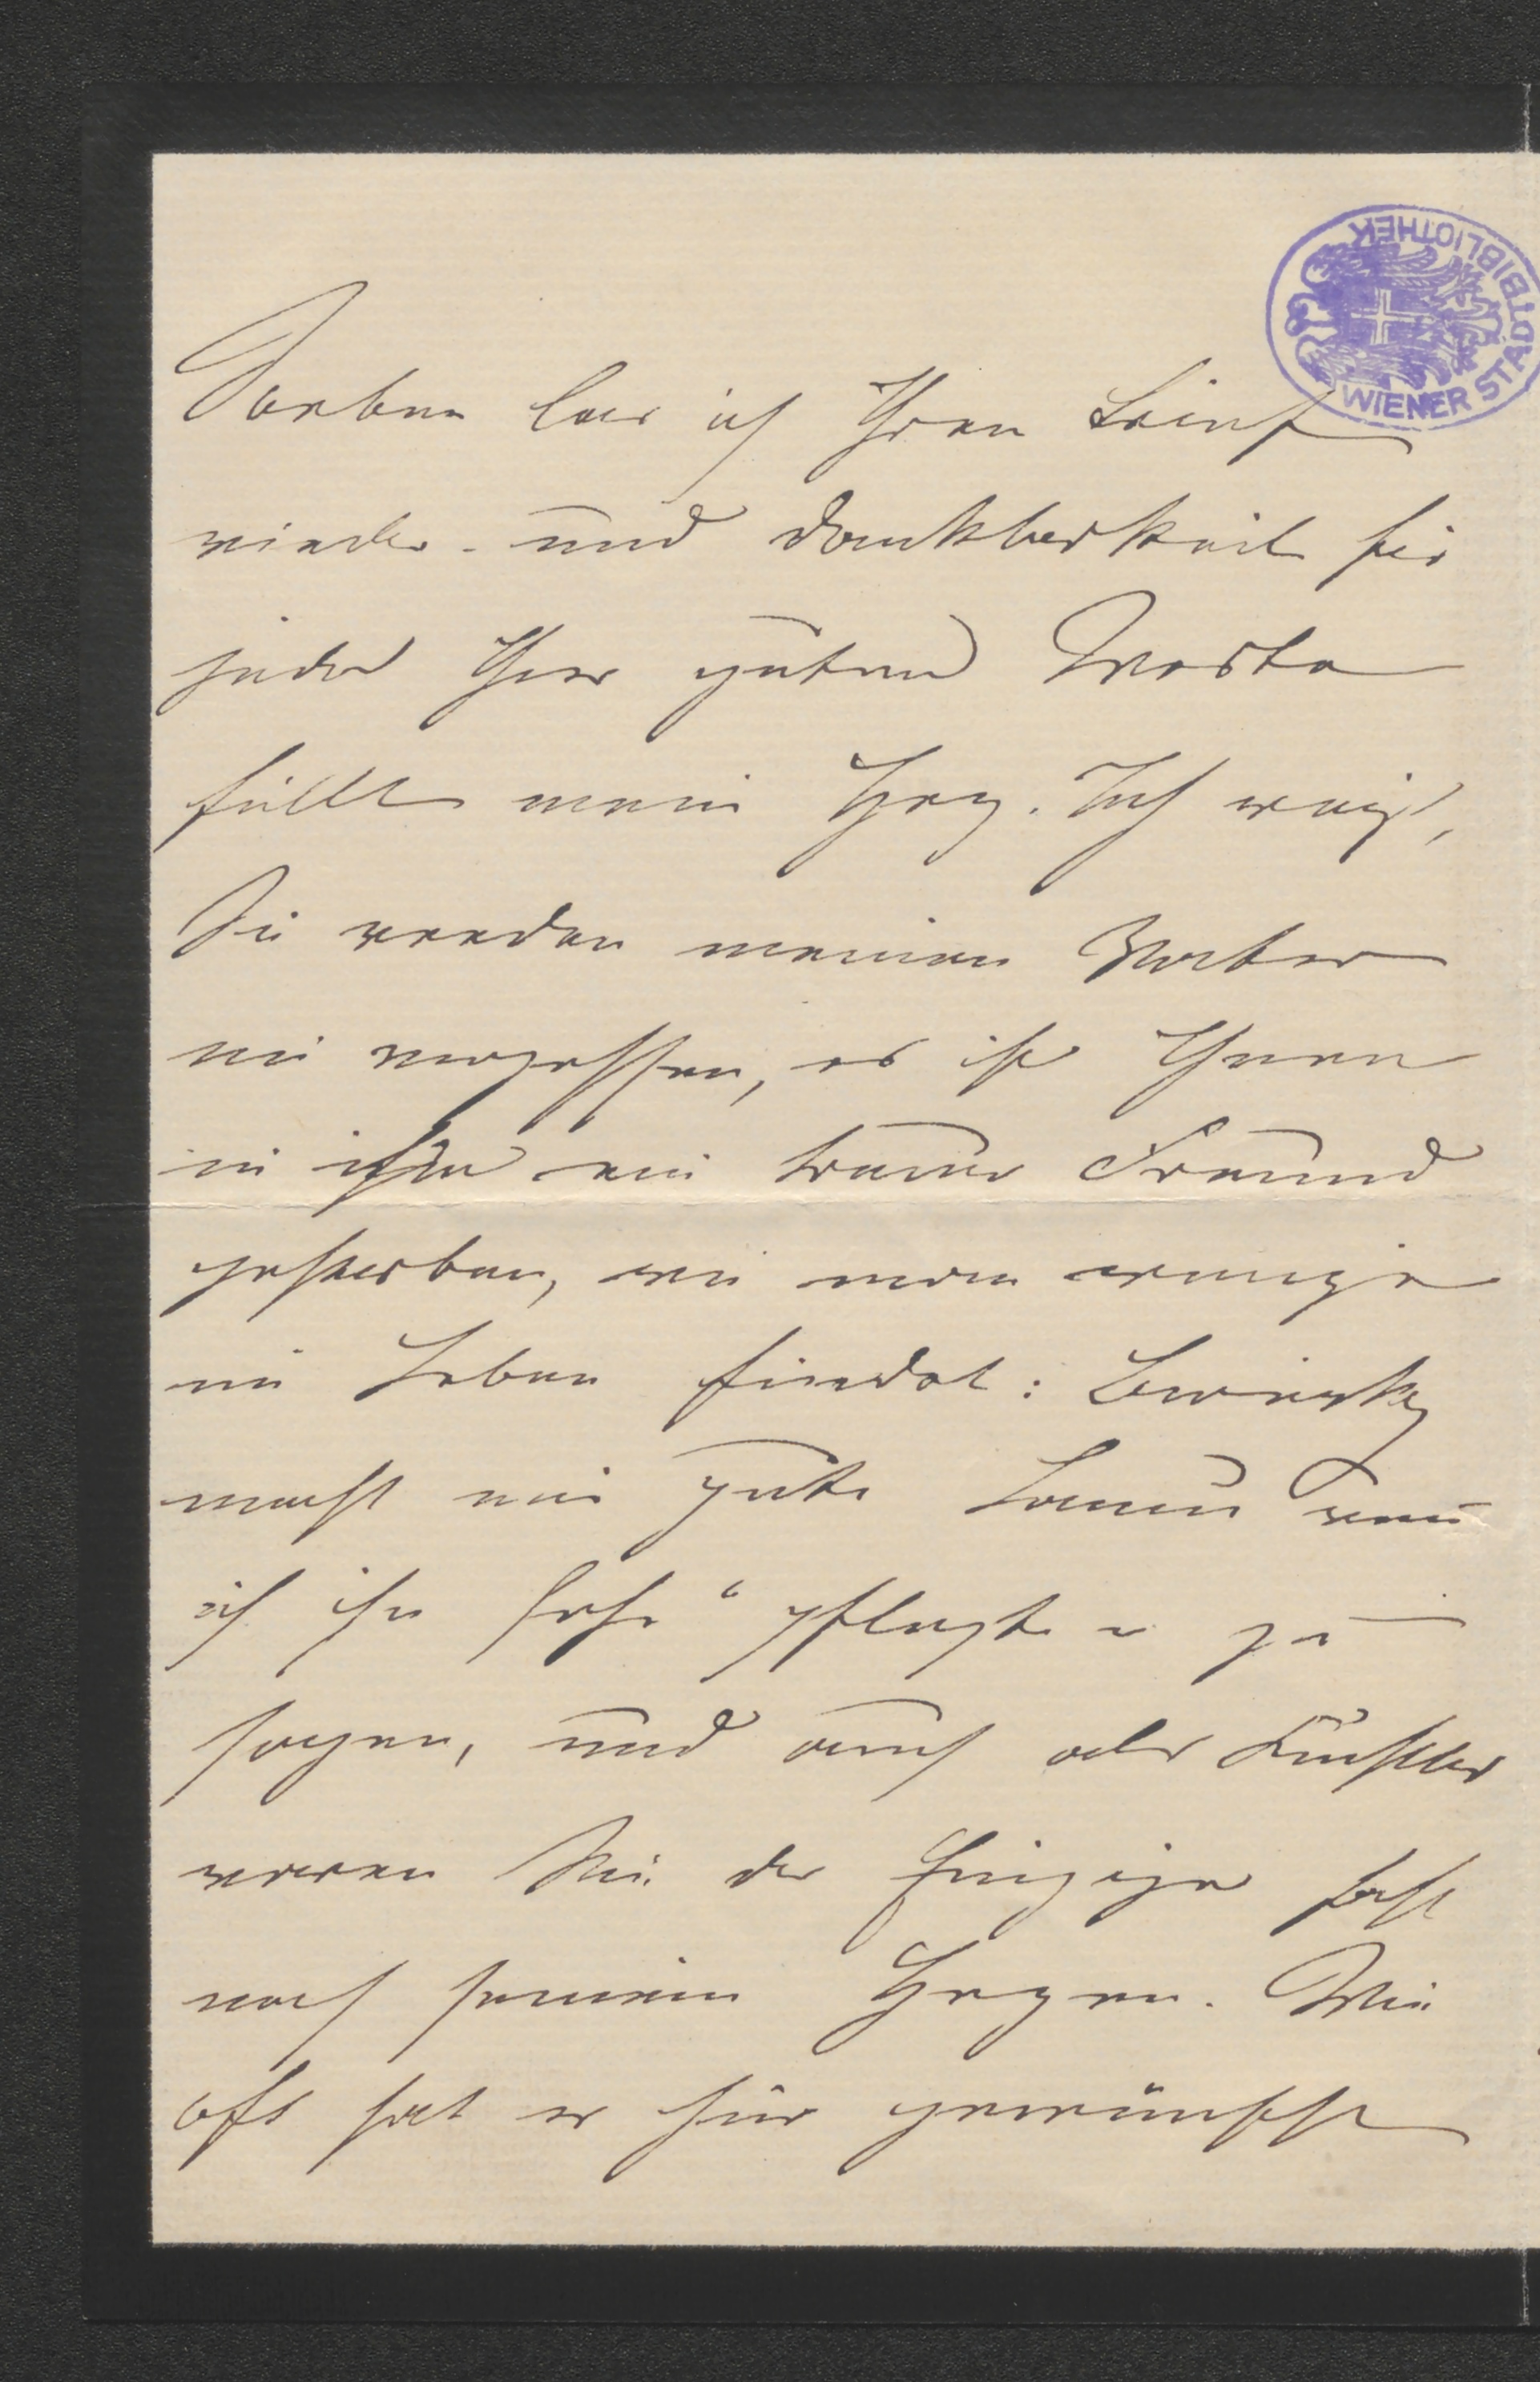 WIENER STADTBIBLIOTHEK
Soeben las ich Ihren Brief
wieder - und Dankbarkeit für
jedes Ihrer guten Worte
füllt mein Herz. Ich weiß,
Sie werden meinen Vater
nie vergessen, es ist Ihnen
in ihm ein treuer Freund
gestorben, wie man wenige
im Leben findet: Lewinsky
macht mir gute Laune wenn
ich ihn sehe" pflegte er zu
sagen, und auch als Künstler
waren Sie der Einzige fast
nach seinem Herzen. Wie
oft hat er sich gewünscht